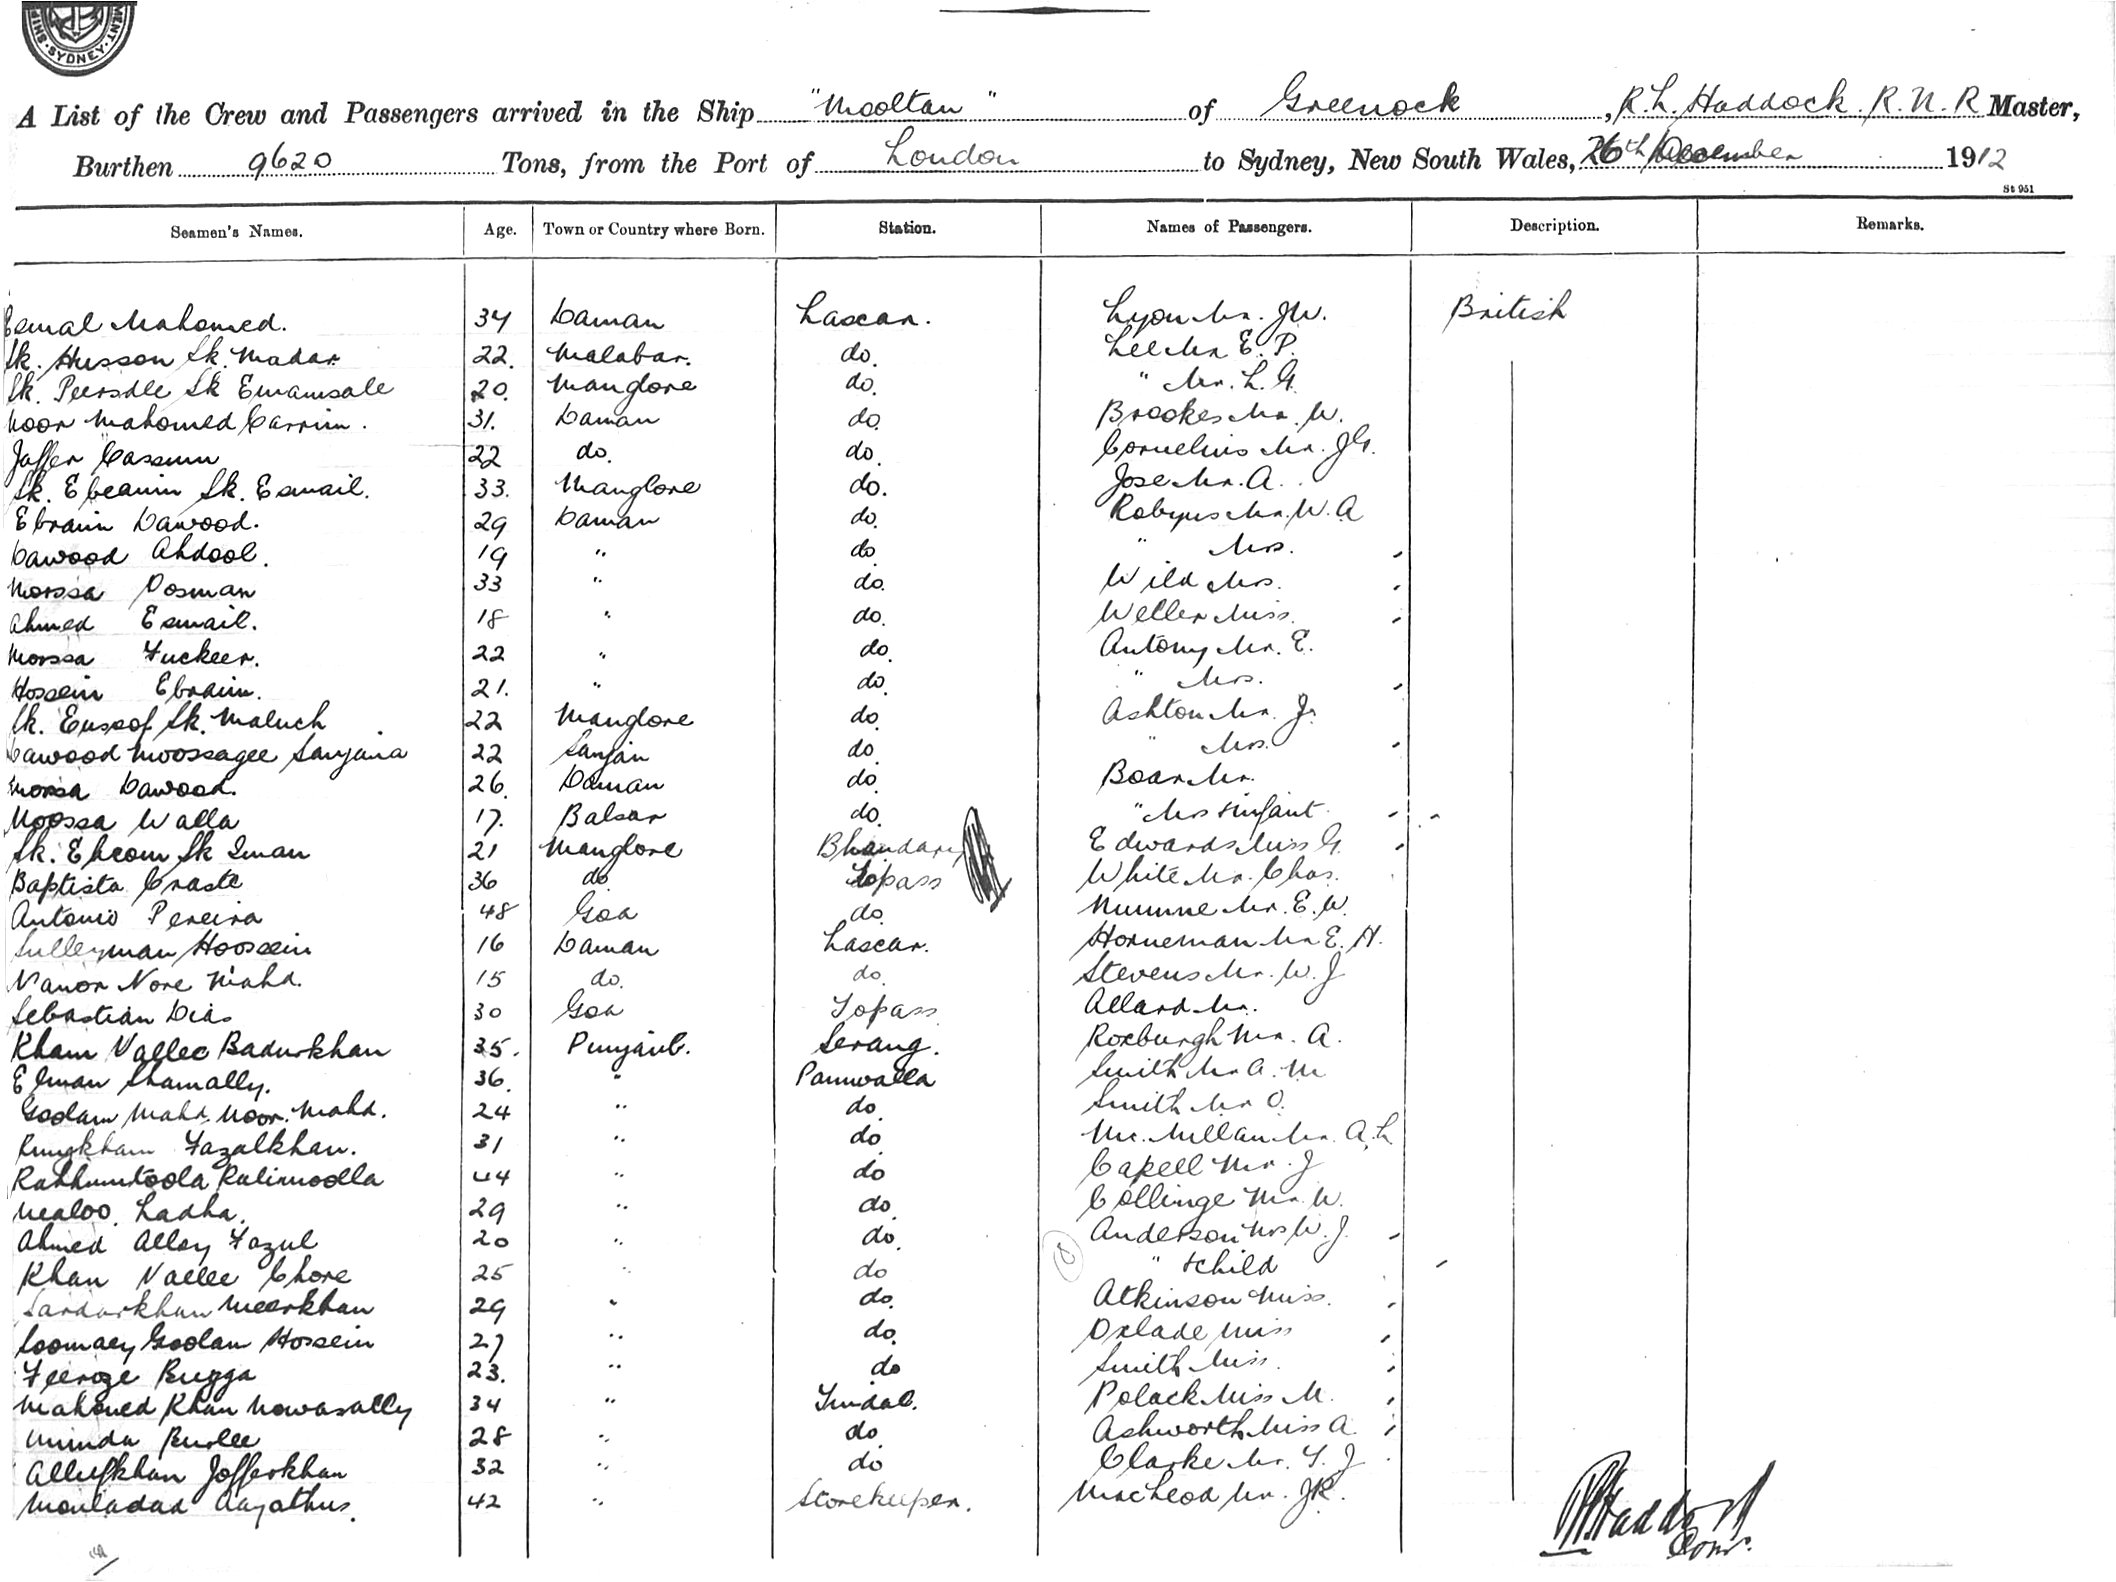 SYDNEY
A List of the Crew and Passengers arrived in the Ship "Mooltan" of Greenock, R. L. Haddock. R. N. R Master,
Burthen 9620 Tons, from the Port of London to Sydney, New South Wales, 26th December 1912
St 951
Seamen's Names. Age. Town or Country where Born. Station. Names of Passengers. Description. Remarks.
Esmal Mahomed. 34 Daman Lascar. Lyon Mr. J W. British
Sk. Husson Sk. Madar 22. Malabar. do. Lee Mr E. P.
Sk. Peersale Sk Emamsale 20. Manglore do. " Mr. L. G.
Noor Mahomed Carrim. 31. Daman do. Brookes Mr. W.
Jaffer Cassum 22 do. do. Cornelius Mr. J G.
Sk. Ebraim Sk. Esmail. 33. Manglore do. Jose Mr. A.
Ebraim Dawood. 29 Daman do. Robyns Mr. W. A
Dawood Abdool. 19 " do. " Mrs.
Moossa Oosman 33 " do. Wild Mrs.
Ahmed Esmail. 18 " do. Weller Miss.
Moossa Fuckeer. 22 " do. Antony Mr. E.
Hossein Ebraim. 21. " do. " Mrs.
Sk. Eussof Sk. Maluch 22 Manglore do. Ashton Mr. J.
Dawood Moossagee Sanjana 22 Sanjan do. " Mrs.
Moosa Dawood. 26. Daman do. Boar Mr.
Moossa Walla 17. Balsar do. " Mrs & Infant
Sk. Ebraim Sk Iman 21 Manglore Bhandary Edwards Miss G.
Baptista Craste 36 do Topass White Mr. Chas.
Antonio Pereira 48 Goa do. Mr. E. W.
Sulleyman Hoossein 16 Daman Lascar. Horneman Mr E. H.
Nanor Nore Mahd. 15 do. do. Stevens Mr. W. J
Sebastian Dias 30 Goa Topass Allard Mr.
Kham Vallee Badurkhan 35. Punjaub. Serang. Roxburgh Mr. A.
Elman Shamally. 36. " Panniwalla Smith Mr A. M
Goolam Mahd. Noor. Mahd. 24 " do. Smith Mr O.
Rungkham Fazalkhan. 31 " do. Mc. Millan Mr. A. L
Rahhumtoola Kalimoolla 44 " do Capell Mr. J
Mealoo. Ladha. 29 " do. Collinge Mr. W.
Ahmed Alley Fazul 20 " do. Anderson Mrs W. J.
Khan Vallee Chore 25 " do " & child
Sardarkhan Meerkhan 29 " do. Atkinson Miss.
Goolam Hossein 27 " do. Oxlade Miss
Feeroze Bugga 23. " do Smith Miss.
Mahomed Khan Nowasally 34 " Tindal. Polack Miss M.
Munda Burlee 28 " do. Ashworth Miss A.
Allufkhan Jofferkhan 32 " do Clarke Mr. F. J
Mouladad 42 " Storekeeper. MacLeod Mr. J R.
R L Haddock
Comr.